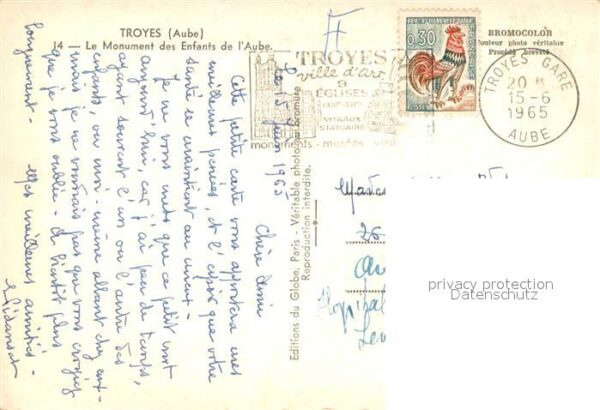 TROYES (Aube)
14 - Le Monument des Enfants de l'Aube.
BROMOCOLOR
Couleur photo véritable
Procédé breveté
REPUBLIQUE FRANÇAISE
0,30
POSTES
TROYES
ville d'art
9
ÉGLISES
VITRAUX
STATUAIRE
monuments - musées
TROYES GARE
20 H
15-6
1965
AUBE
Editions du Globe, Paris - Véritable photo au bromure
Reproduction interdite.
Le 15 Juin 1965
Chère Amie
Cette petite carte vous apportera mes
meilleures pensées, et j'espère que votre
santé se maintient au mieux -
Je ne vous mets que ce petit mot
aujourd'hui, car j'ai peu de temps,
ayant souvent l'un ou l'autre des
enfants, ou moi-même allant chez eux -
mais je ne voudrais pas que vous croyiez
que je vous oublie - A bientôt plus
longuement - Mes meilleures amitiés -
26
Hôpital
privacy protection
Datenschutz